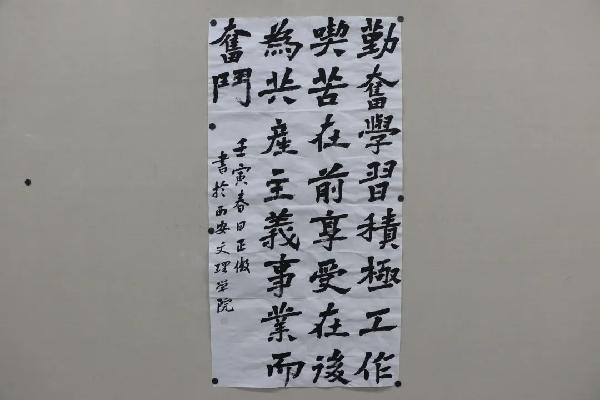 勤奮學習積極工作
喫苦在前享受在後
為共産主義事業而
奮鬥
壬寅春日正傲
書於西安文理学院